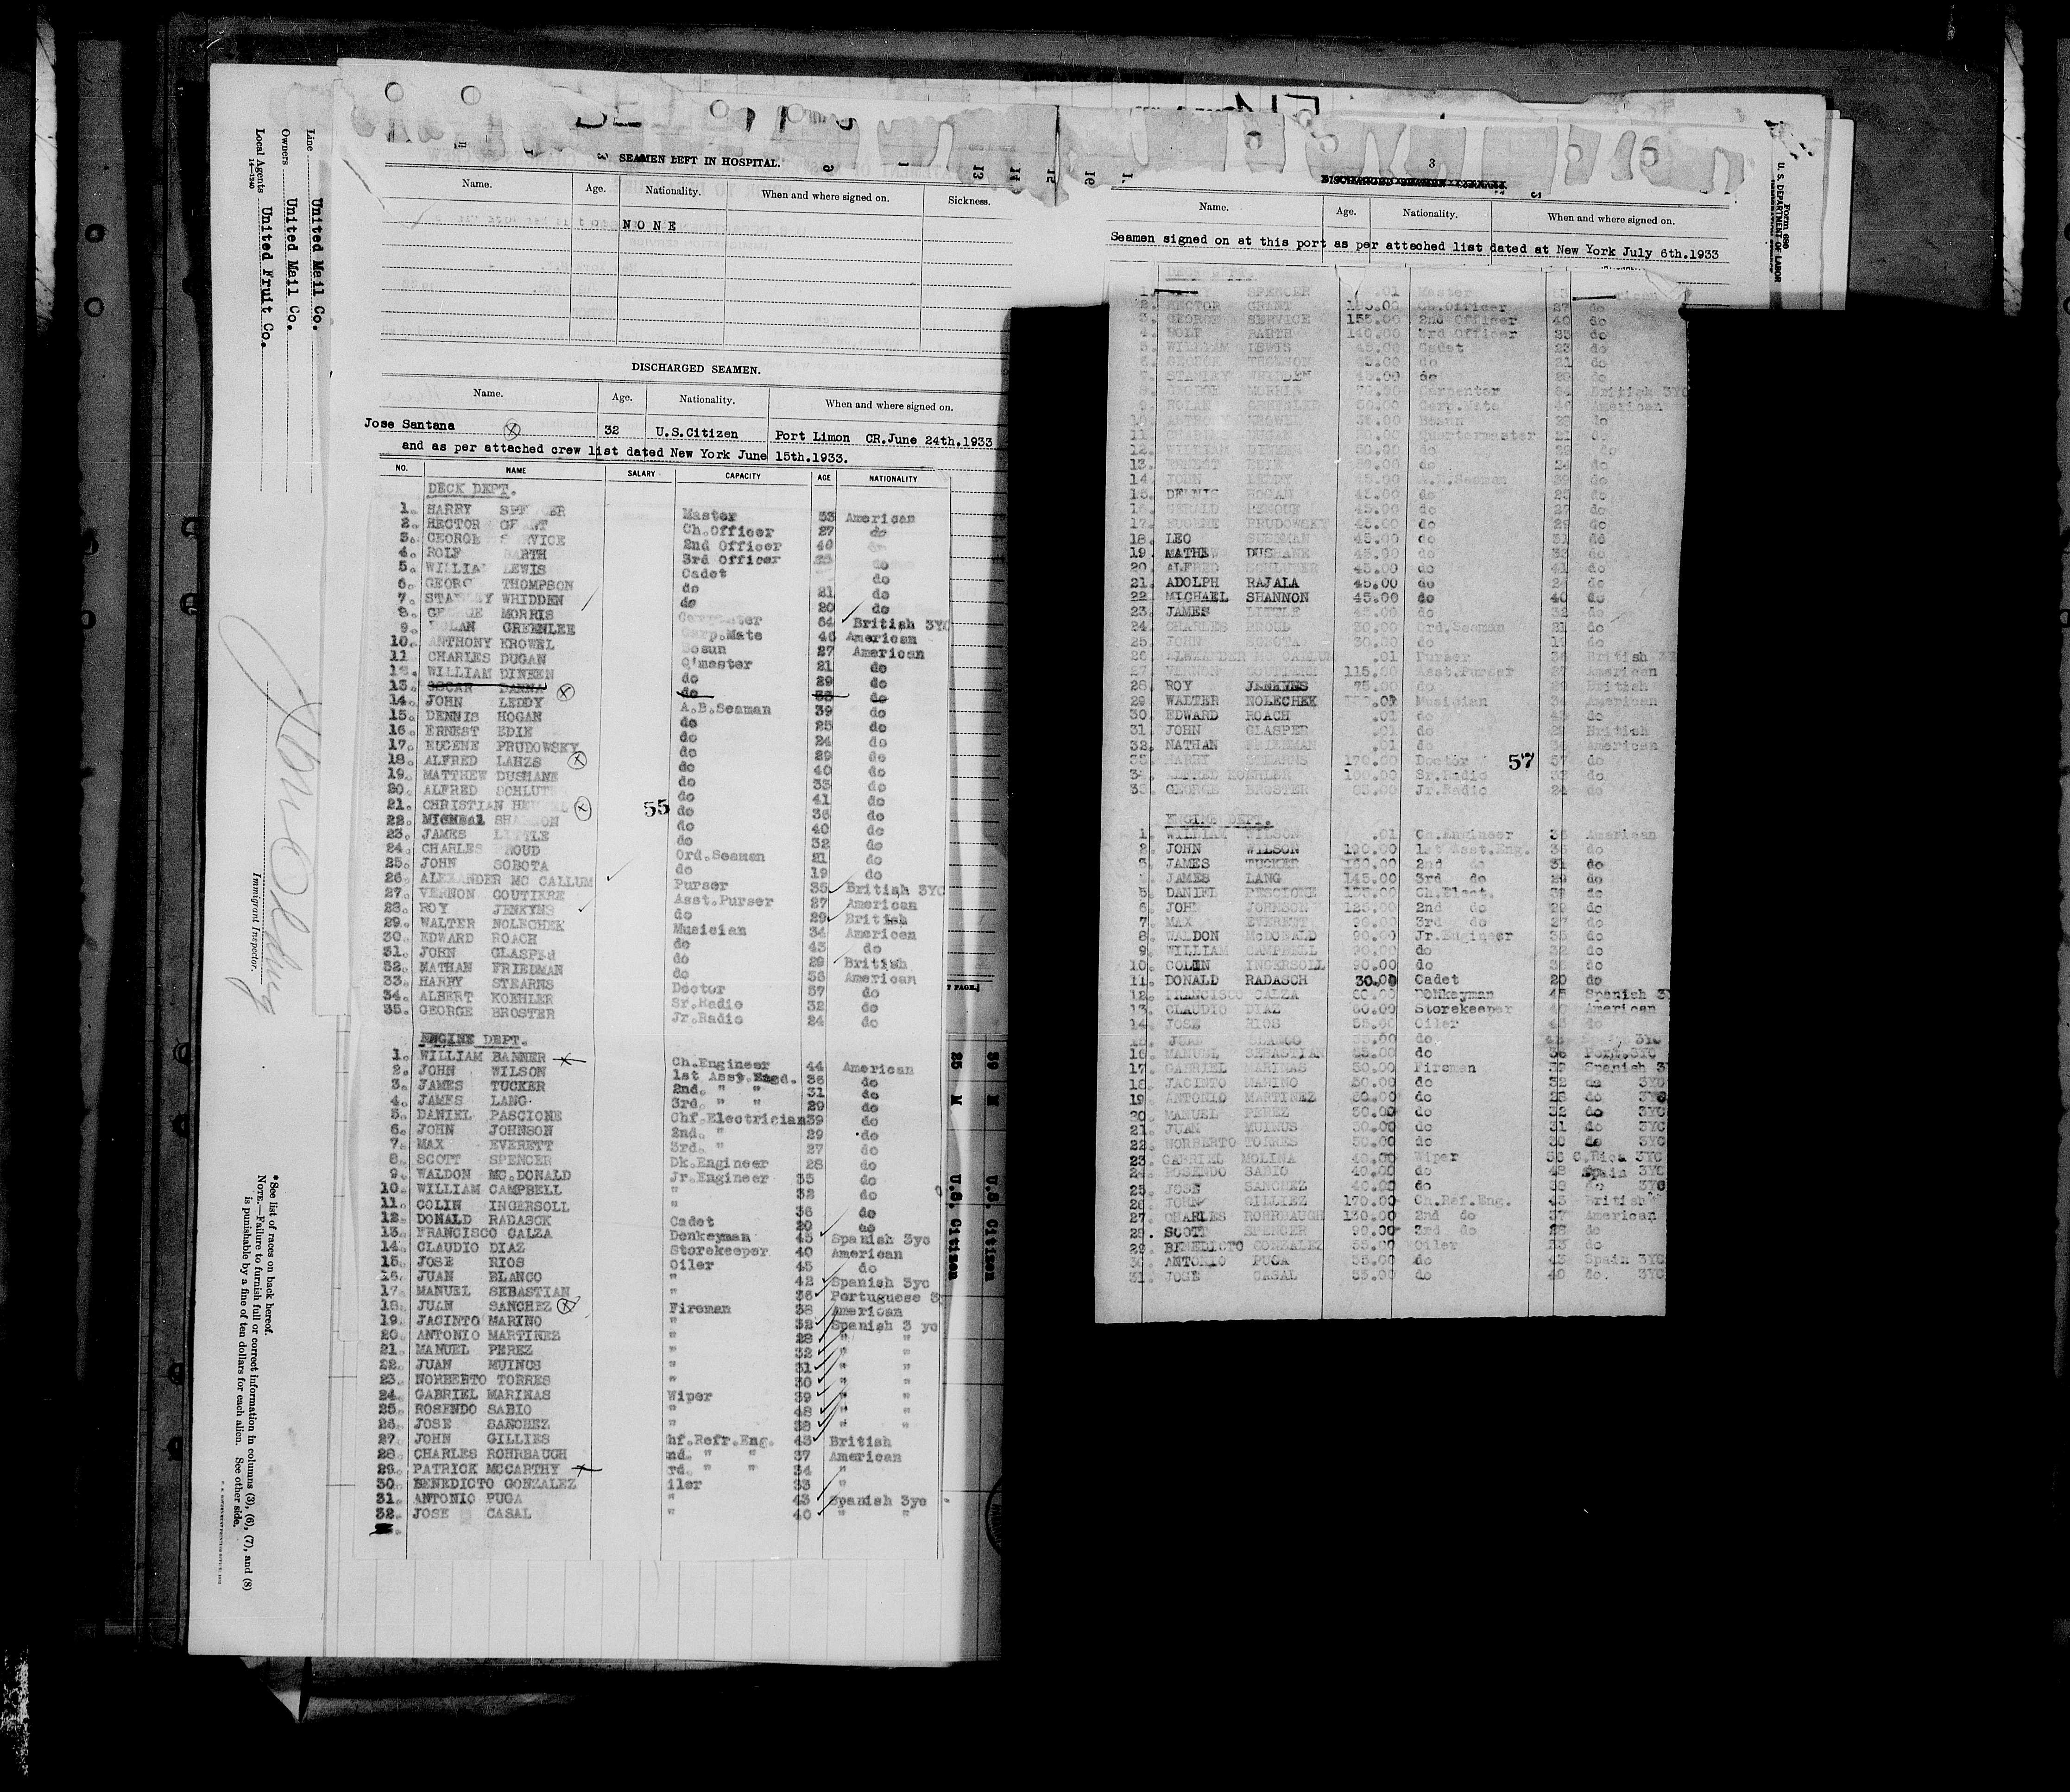 Line United Mail Co.
Owners United Mail Co.
Local Agents United Fruit Co.
14—1240
Immigrant Inspector.
*See list of races on back hereof.
NOTE.—Failure to furnish full or correct information in columns (3), (6), (7), and (8)
is punishable by a fine of ten dollars for each alien. See other side.
SEAMEN LEFT IN HOSPITAL.
Name. Age. Nationality. When and where signed on. Sickness.
NONE
DISCHARGED SEAMEN.
Name. Age. Nationality. When and where signed on.
Jose Santana 32 U.S.Citizen Port Limon CR.June 24th.1933
and as per attached crew list dated New York June 15th.1933.
NO. NAME SALARY CAPACITY AGE NATIONALITY
DECK DEPT.
1. HARRY Master 53 American
2. HECTOR Ch.Officer 27 do
3. GEORGE 2nd Officer 40
4. ROLF 3rd Officer do
5. LEWIS Cadet do
6. THOMPSON do 21 do
7. WHIDDEN do 20 do
8. MORRIS 64 British 3YC
9. GREENLEE Carp.Mate 46 American
10. ANTHONY KROWEL Bosun 27 American
11 CHARLES DUGAN Q'master 21 do
12. WILLIAM DINEEN do 29 do
13. OSCAR do do
14. JOHN LEDDY A.B.Seaman 39 do
15. DENNIS HOGAN do 25 do
16. ERNEST EDIE do 24 do
17. EUGENE PRUDOWSKY do 29 do
18. ALFRED LAHZS do 40 do
19. MATTHEW DUSHANE do 33 do
20. ALFRED do 41 do
21. CHRISTIAN do 36 do
55
22. MICHEAL do 40 do
23. JAMES do 32 do
24. CHARLES Ord.Seaman 21 do
25. JOHN SOBOTA do 19 do
26. ALEXANDER MC CALLUM Purser 35 British 3YC
27. VERNON GOUTIERE Asst.Purser 27 American
28. ROY JENKYNS do 29 British
29. WALTER NOLECHEK Musician 34 American
30. EDWARD ROACH do 43 do
31. JOHN do 29 British
32. NATHAN FRIEDMAN do 36 American
33. HARRY STEARNS Doctor 57 do
34. ALBERT KOEHLER Sr.Radio 32 do
35. GEORGE BROSTER Jr.Radio 24 do
ENGINE DEPT.
1. WILLIAM BANNER Ch.Engineer 44 American
2. JOHN WILSON 1st 36 do
3. JAMES TUCKER 2nd. " " 31 do
4. JAMES LANG 3rd. " " 29 do
5. DANIEL PASCIONE Chf.Electrician 39 do
6. JOHN JOHNSON 2nd. " 29 do
7. MAX EVERETT 3rd. " 27 do
8. SCOTT SPENCER Dk.Engineer 28 do
9. WALDON MC.DONALD Jr.Engineer 35 do
10. WILLIAM CAMPBELL " 32 do
11. COLIN INGERSOLL " 36 do
12. DONALD RADASCK Cadet 20 do
13. FRANCISCO CALZA Donkeyman 45 Spanish 3yc
14. CLAUDIO DIAZ Storekeeper 40 American
15. JOSE RIOS Oiler 45 do
16. JUAN BLANCO " 42 Spanish 3yc
17. MANUEL SEBASTIAN " 36 Portuguese 3
18. JUAN SANCHEZ Fireman 38 American
19. JACINTO MARINO " 32 Spanish 3 yc
20. ANTONIO MARTINEZ " 28 " "
21. MANUEL PEREZ " 32 " "
22. JUAN MUINOS " 31 " "
23. NORBERTO TORRES " 30 " "
24. GABRIEL MARINAS Wiper 39 " "
25. ROSENDO SABIO " 48 " "
26. JOSE SANCHEZ " 38 " "
27. JOHN GILLIES hf.Refr.Eng. 43 British
28. CHARLES ROHRBAUGH nd. " " 37 American
29. PATRICK MCCARTHY rd. " " 34 "
30. BENEDICTO GONZALEZ iler 33 "
31. ANTONIO PUGA " 43 Spanish 3yc
32. JOSE CASAL " 40 " "
25 M U.S. Citizen
39 M U.S. Citizen
3
Form 680
U. S. DEPARTMENT OF LABOR
Name. Age. Nationality. When and where signed on.
Seamen signed on at this port as per attached list dated at New York July 6th.1933
DECK DEPT.
1. SPENCER .01 Master American
2. HECTOR GRANT Ch.Officer 27 do
3. GEORGE SERVICE 155.00 2nd Officer 40 do
4. ROLF BARTH 140.00 3rd Officer do
5. WILLIAM LEWIS 45.00 Cadet 23 do
6. do 21 do
7. STANLEY WHIDDEN 45.00 do 20 do
8. MORRIS Carpenter British 3YC
9. Carp.Mate American
10. Bosun do
11. Quartermaster 21 do
12. WILLIAM do do
13. ERNEST EDIE do 24 do
14. JOHN LEDDY 45.00 A.B.Seaman 39 do
15. DENNIS HOGAN 45.00 do 25 do
16. GERALD 45.00 do 27 do
17. EUGENE PRUDOWSKY 45.00 do 29 do
18. LEO 45.00 do 31 do
19. DUSHANE 45.00 do 33 do
20. ALFRED SCHLUTER 45.00 do 41 do
21. ADOLPH RAJALA 45.00 do do
22. MICHAEL SHANNON 45.00 do 40 do
23. JAMES LITTLE 45.00 do 32 do
24. CHARLES 30.00 Ord.Seaman 21 do
25. JOHN 30.00 do 19 do
26. .01 Purser British
27. VERNON 115.00 Asst.Purser 27 American
28. ROY JENKYNS 75.00 do British
29. WALTER NOLECHEK Musician American
30. EDWARD ROACH .01 do do
31 JOHN GLASPER .01 do British
32. NATHAN FRIEDMAN .01 do American
33. HARRY STEARNS 170.00 Doctor 57 do
57
34. ALFRED KOEHLER 100.00 Sr.Radio 32 do
35. GEORGE BROSTER Jr.Radio 24 do
ENGINE DEPT.
1. WILLIAM WILSON .01 Ch.Engineer American
2. JOHN WILSON 190.00 1st Asst.Eng. 36 do
3. JAMES TUCKER 160.00 2nd do 31 do
JAMES LANG 145.00 3rd do 29 do
5. DANIEL PESCIONE 175.00 Ch.Elect. do
6. JOHN JOHNSON 125.00 2nd do 29 do
7 MAX EVERETT 90.00 3rd do 27 do
8 WALDON McDONALD 90.00 Jr.Engineer 35 do
9 WILLIAM CAMPBELL 90.00 do 32 do
10. COLIN INGERSOLL 90.00 do do
11. DONALD RADASCH 30.00 Cadet 20 do
12. FRANCISCO CALZA 60.00 Donkeyman 45 Spanish 3Y
13. CLAUDIO DIAZ 60.00 Storekeeper 40 American
14. JOSE RIOS 55.00 Oiler do
JUAN BLANCO 55.00 do 42 3YC
16. MANUEL SEBASTIAN 55.00 do 36 Port.3YC
17. GABRIEL MARINAS 50.00 Fireman 39 Spanish 3Y
18. JACINTO MARINO 50.00 do 32 do 3YC
19. ANTONIO MARTINEZ 50.00 do 28 do 3YC
20. MANUEL PEREZ 50.00 do 32 do 3YC
21. JUAN MUINUS 50.00 do 31 do 3YC
22. NORBERTO TORRES 50.00 do 30 do 3YC
23. GABRIEL MOLINA 40.00 Wiper C.Rica 3YC
24. ROSENDO SABIO 40.00 do 48 Spain 3YC
25. JOSE SANCHEZ 40.00 do 38 do 3YC
26. JOHN GILLIEZ 170.00 Ch.Ref.Eng. 43 British
27. CHARLES ROHRBAUGH 130.00 2nd do 37 American
29. SCOTT SPENCER 90.00 3rd do 28 do
29. BENEDICTO GONZALEZ 55.00 Oiler do
30. ANTONIO PUGA 55.00 do 43 Spain 3YC
31. JOSE CASAL 55.00 do 40 do. 3YC